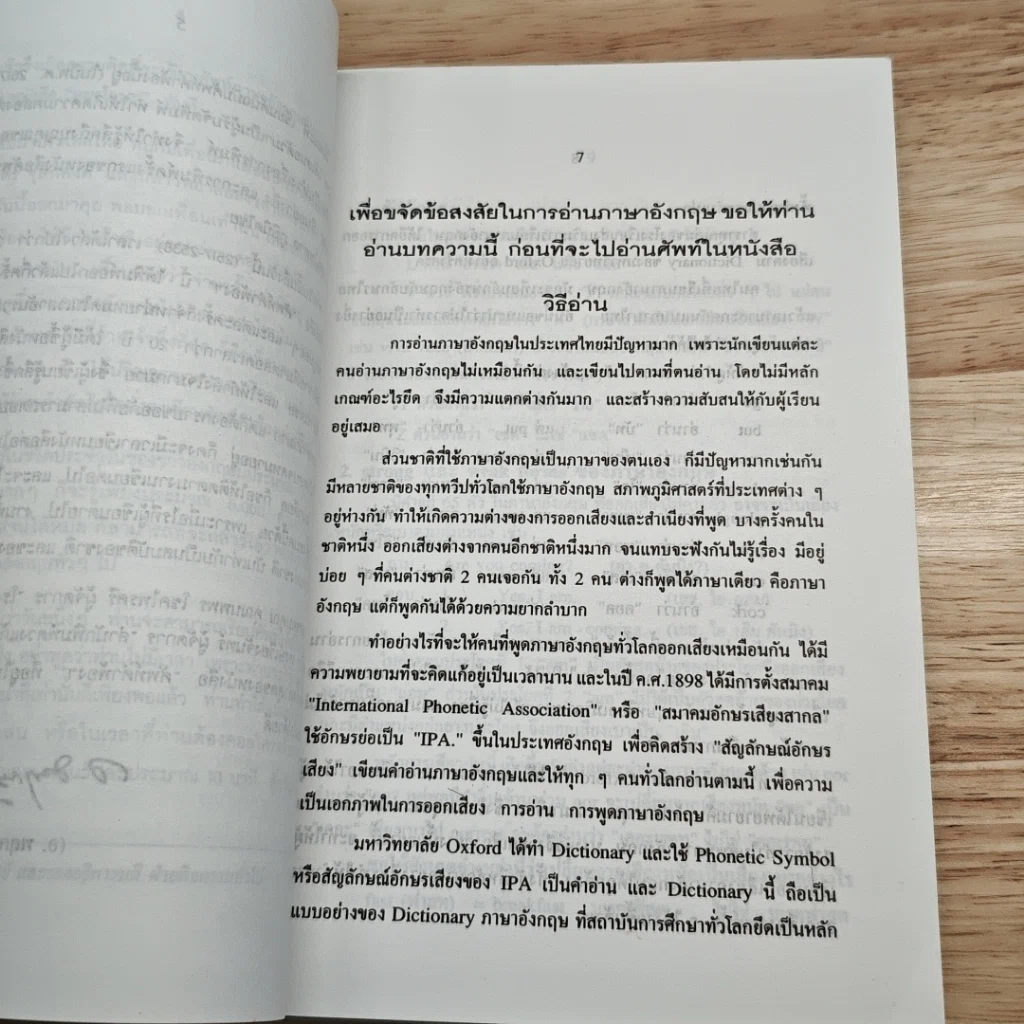 7
เพื่อขจัดข้อสงสัยในการอ่านภาษาอังกฤษ ขอให้ท่าน
อ่านบทความนี้ ก่อนที่จะไปอ่านศัพท์ในหนังสือ
วิธีอ่าน
การอ่านภาษาอังกฤษในประเทศไทยมีปัญหามาก เพราะนักเขียนแต่ละ
คนอ่านภาษาอังกฤษไม่เหมือนกัน และเขียนไปตามที่ตนอ่าน โดยไม่มีหลัก
เกณฑ์อะไรยึด จึงมีความแตกต่างกันมาก และสร้างความสับสนให้กับผู้เรียน
อยู่เสมอ
ส่วนชาติที่ใช้ภาษาอังกฤษเป็นภาษาของตนเอง ก็มีปัญหามากเช่นกัน
มีหลายชาติของทุกทวีปทั่วโลกใช้ภาษาอังกฤษ สภาพภูมิศาสตร์ที่ประเทศต่าง ๆ
อยู่ห่างกัน ทำให้เกิดความต่างของการออกเสียงและสำเนียงที่พูด บางครั้งคนใน
ชาติหนึ่ง ออกเสียงต่างจากคนอีกชาติหนึ่งมาก จนแทบจะฟังกันไม่รู้เรื่อง มีอยู่
บ่อย ๆ ที่คนต่างชาติ 2 คนเจอกัน ทั้ง 2 คน ต่างก็พูดได้ภาษาเดียว คือภาษา
อังกฤษ แต่ก็พูดกันได้ด้วยความยากลำบาก
ทำอย่างไรที่จะให้คนที่พูดภาษาอังกฤษทั่วโลกออกเสียงเหมือนกัน ได้มี
ความพยายามที่จะคิดแก้อยู่เป็นเวลานาน และในปี ค.ศ.1898 ได้มีการตั้งสมาคม
"International Phonetic Association" หรือ "สมาคมอักษรเสียงสากล"
ใช้อักษรย่อเป็น "IPA." ขึ้นในประเทศอังกฤษ เพื่อคิดสร้าง "สัญลักษณ์อักษร
เสียง" เขียนคำอ่านภาษาอังกฤษและให้ทุก ๆ คนทั่วโลกอ่านตามนี้ เพื่อความ
เป็นเอกภาพในการออกเสียง การอ่าน การพูดภาษาอังกฤษ
มหาวิทยาลัย Oxford ได้ทำ Dictionary และใช้ Phonetic Symbol
หรือสัญลักษณ์อักษรเสียงของ IPA เป็นคำอ่าน และ Dictionary นี้ ถือเป็น
แบบอย่างของ Dictionary ภาษาอังกฤษ ที่สถาบันการศึกษาทั่วโลกยึดเป็นหลัก